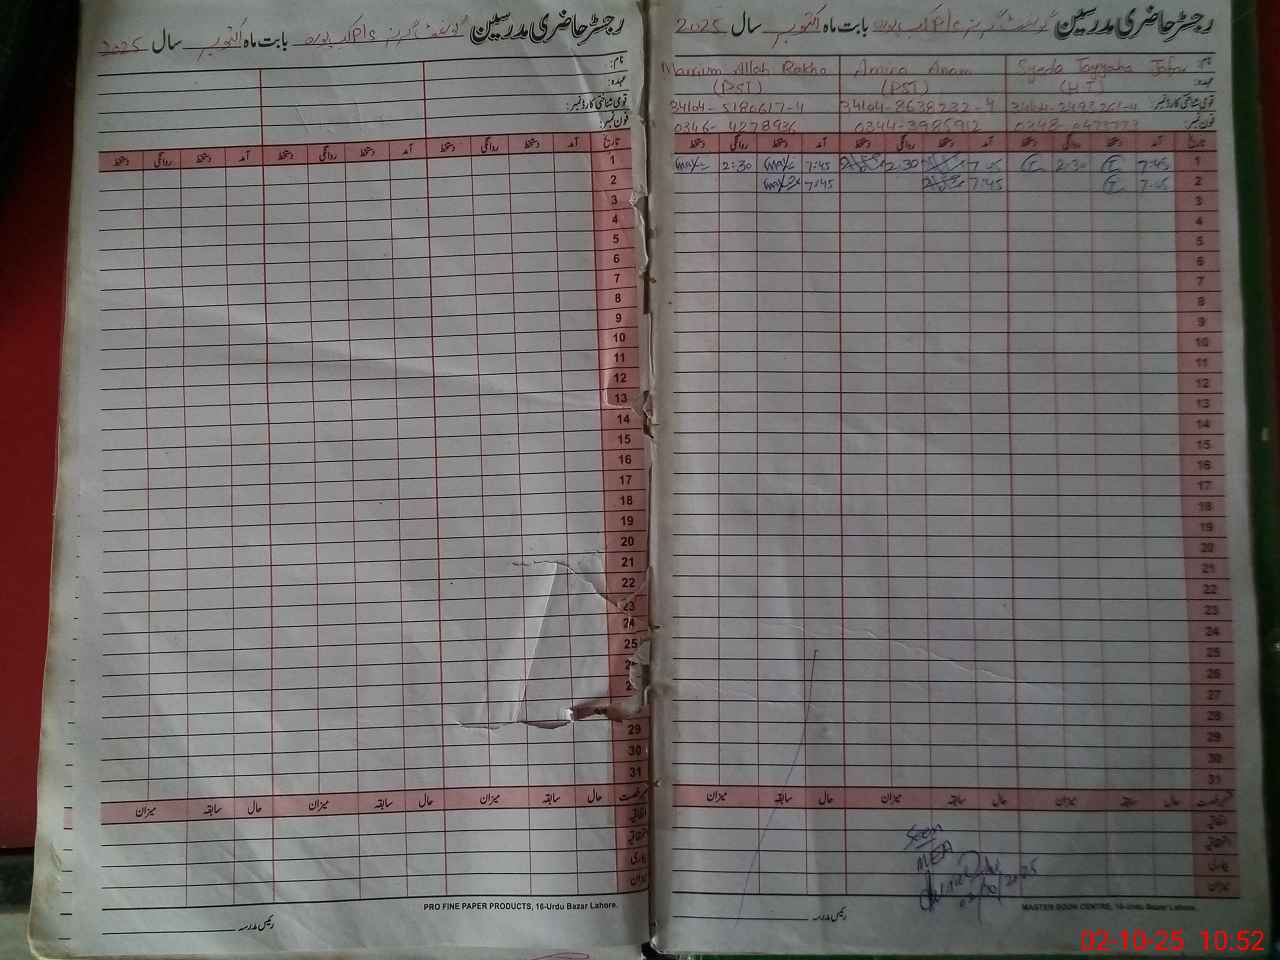 رجسٹر حاضری مدرسین گورنمنٹ گرلز P/S بابت ماہ اکتوبر سال 2025
نام:
عہدہ:
قومی شناختی کارڈ نمبر:
فون نمبر:
تاریخ آمد دستخط روانگی دستخط آمد دستخط روانگی دستخط آمد دستخط روانگی دستخط
1
2
3
4
5
6
7
8
9
10
11
12
13
14
15
16
17
18
19
20
21
22
23
24
25
29
30
31
حال سابقہ میزان حال سابقہ میزان حال سابقہ میزان
اتفاقیہ
استحقاقیہ
بیماری
میزان
PRO FINE PAPER PRODUCTS, 16-Urdu Bazar Lahore.
رئیس مدرسہ
رجسٹر حاضری مدرسین گورنمنٹ گرلز P/S بابت ماہ اکتوبر سال 2025
نام: Syeda Tayyaba Amina Anam Marium Allah Rakha
عہدہ: (H.T) (PST) (PST)
قومی شناختی کارڈ نمبر: 34104-8638232-4 34104-5180617-4
فون نمبر: 0344-3985912 0346-4278936
تاریخ آمد دستخط روانگی دستخط آمد دستخط روانگی دستخط آمد دستخط روانگی دستخط
1 7:45 2:30 7:45 2:30 7:45 2:30
2 7:45 7:45 7:45
3
4
5
6
7
8
9
10
11
12
13
14
15
16
17
18
19
20
21
22
23
24
25
26
27
28
29
30
31
حال سابقہ میزان حال سابقہ میزان حال سابقہ میزان
اتفاقیہ
استحقاقیہ
بیماری
میزان
Seen
MEA
02/10/2025
MASTER BOOK CENTRE, 16-Urdu Bazar Lahore.
رئیس مدرسہ
02-10-25 10:52